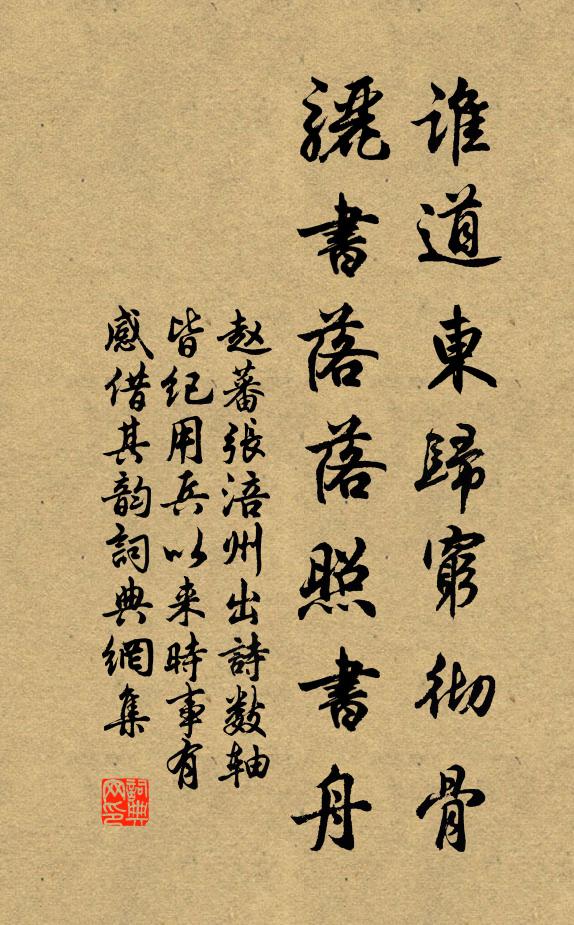 誰道東歸窮徹骨
驪書落落照書舟
赵蕃張涪州出詩数轴
皆纪用兵以来時事有
感借其韵詞典網集
詞典网印